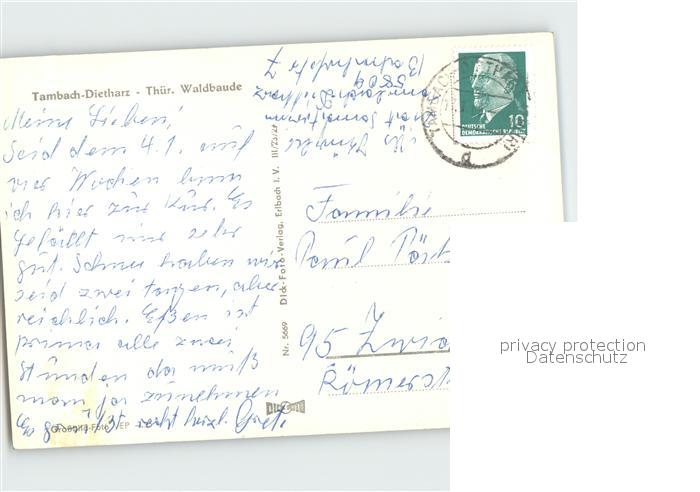 Tambach-Dietharz - Thür. Waldbaude
Meine Lieben!
Seid dem 4.1. auf
vier Wochen bin
ich hier zur Kur. Es
gefällt mir sehr
gut. Schnee haben wir
seid zwei tagen, aber
reichlich. Eßen ist
prima alle zwei
Stunden da muß
man ja zunehmen
Es grüßt recht herzl. Gret.
Großbild-Foto EP
Nr. 5669 Dick-Foto-Verlag, Erlbach i. V. III/25/2
Bahnhofstr 7
5809
Tambach Dietharz
10
DEUTSCHE
DEMOKRATISCHE REPUBLIK
TAMBACH
d
Familie
Paul
95 Zwic
Römerst
privacy protection
Datenschutz